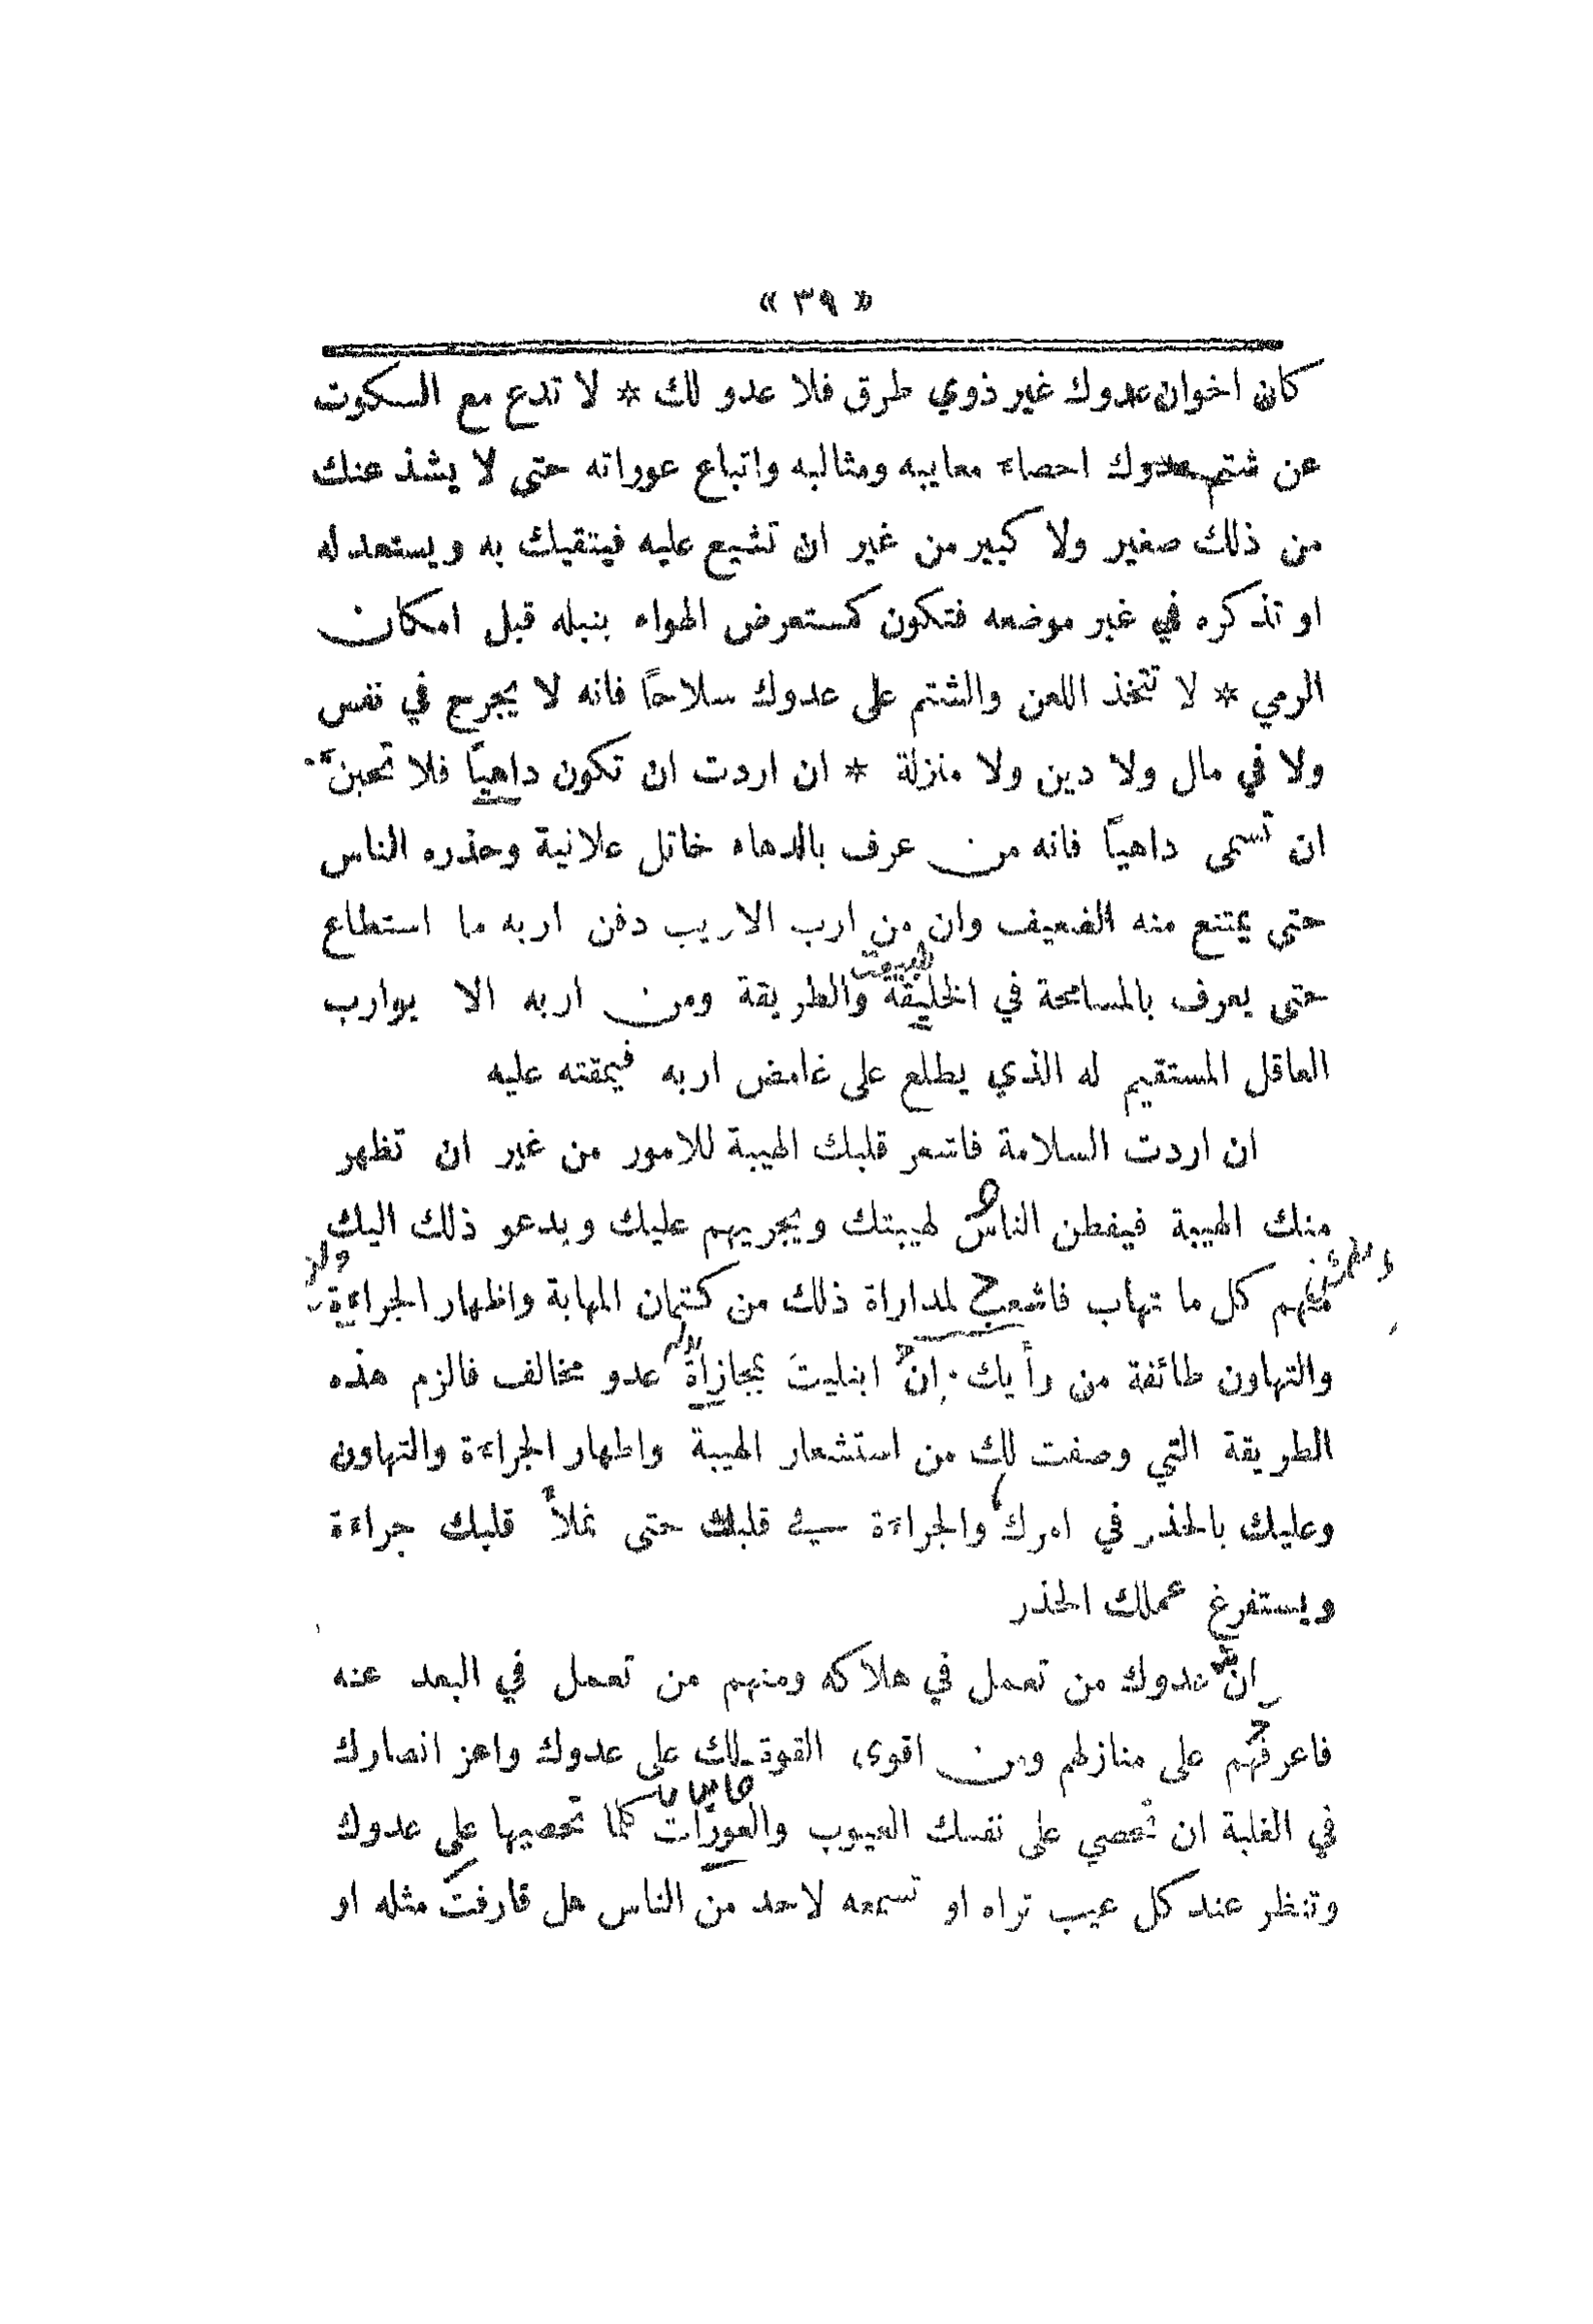 « ٣٩ »
كان اخوان عدوك غير ذوي طرق فلا عدو لك * لا تدع مع السكوت
عن شتم عدوك احصاء معايبه ومثالبه واتباع عوراته حتى لا يشذ عنك
من ذلك صغير ولا كبير من غير ان تشيع عليه فيتقيك به ويستعد له
او تذكره في غير موضعه فتكون كمستعرض الهواء بنبله قبل امكان
الرمي * لا تتخذ اللعن والشتم على عدوك سلاحًا فانه لا يجرح في نفس
ولا في مال ولا دين ولا منزلة * ان اردت ان تكون داهيًا فلا تحبنّ
ان تسمى داهيًا فانه من عرف بالدهاء خاتل علانية وحذره الناس
حتى يمتنع منه الضعيف وان من ارب الاريب دفن اربه ما استطاع
طبيعت
حتى يعرف بالمسامحة في الخليقة والطريقة ومن اربه الا يوارب
العاقل المستقيم له الذي يطلع على غامض اربه فيمقته عليه
ان اردت السلامة فاشعر قلبك الهيبة للامور من غير ان تظهر
منك الهيبة فيفطن الناس لهيبتك ويجريهم عليك ويدعو ذلك اليك
منهم كل ما تهاب فاشعب لمداراة ذلك من كتمان المهابة واظهار الجراءة
والتهاون طائفة من رأيك. ان ابتليتَ بمجازاة عدو مخالف فالزم هذه
الطريقة التي وصفت لك من استشعار الهيبة واظهار الجراءة والتهاون
وعليك بالحذر في امرك والجراءة في قلبك حتى تملأ قلبك جراءة
ويستفرغ عملك الحذر
ان عدوك من تعمل في هلاكه ومنهم من تعمل في البعد عنه
فاعرفهم على منازلهم ومن اقوى القوة لك على عدوك واعز انصارك
في الغلبة ان تحصي على نفسك العيوب والعورات كما تحصيها على عدوك
وتنظر عند كل عيب تراه او تسمعه لاحد من الناس هل قارفت مثله او